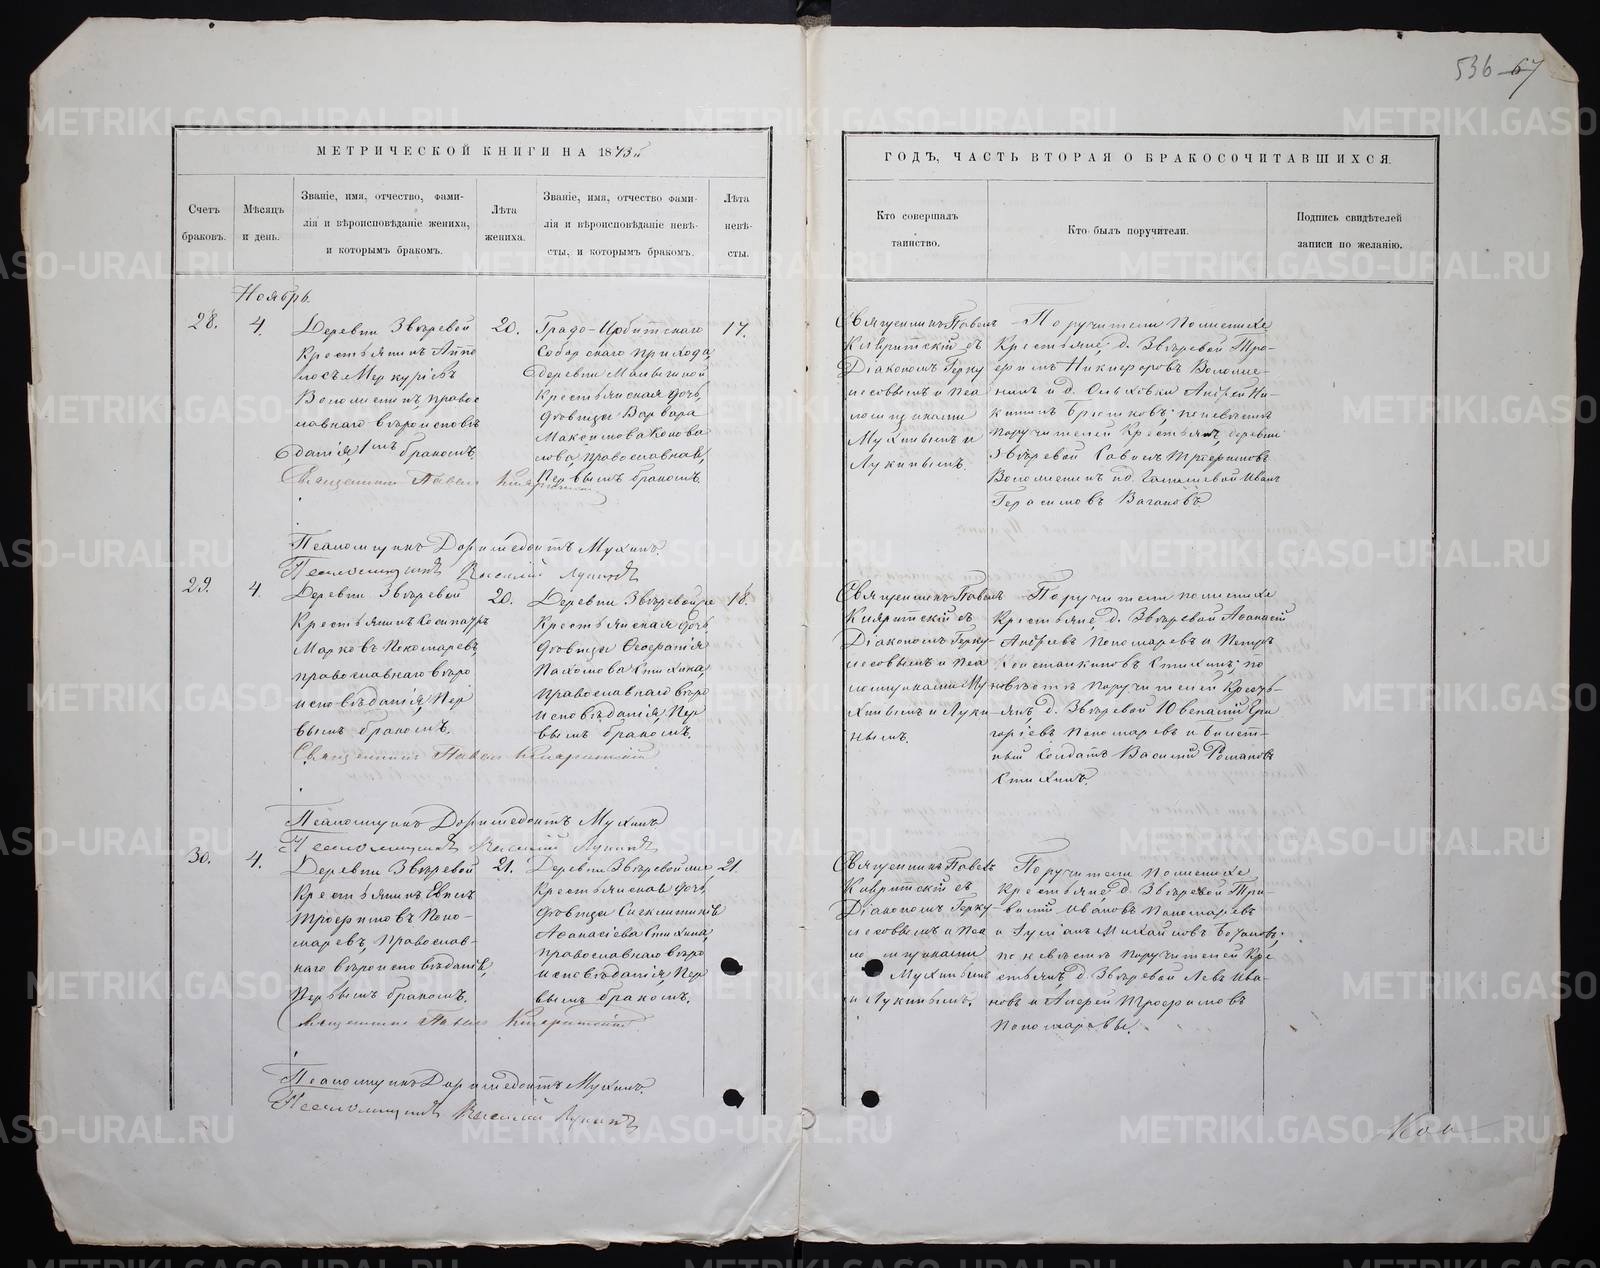 536 67
МЕТРИЧЕСКОЙ КНИГИ НА 1873й
ГОДЪ, ЧАСТЬ ВТОРАЯ О БРАКОСОЧИТАВШИХСЯ.
Счетъ
браковъ.
Мѣсяцъ
и день.
Званіе, имя, отчество, фами-
лія и вѣроисповѣданіе жениха,
и которымъ бракомъ.
Лѣта
жениха.
Званіе, имя, отчество фами-
лія и вѣроисповѣданіе невѣ-
сты, и которымъ бракомъ.
Лѣта
невѣ-
сты.
Кто совершалъ
таинство.
Кто былъ поручители.
Подпись свидѣтелей
записи по желанію.
Ноябрь.
28.
4.
Деревни Звѣревой
Крестьянинъ Аппо
лосъ Меркуріевъ
Воложенинъ, правос
лавнаго вѣроисповѣ
данія, 1мъ бракомъ.
20.
Градо-Ирбитскаго
Соборнаго прихода,
деревни Мальгиной
Крестьянская дочь,
дѣвица Варвара
Максимова Конова
лова, православная,
Первымъ бракомъ.
17.
Священникъ Павелъ
съ
Діакономъ Герку
лесовымъ и Пса
ломщиками
Мухинымъ и
Лукинымъ.
Поручители по женихѣ
Крестьяне, д. Звѣревой Тро-
фимъ Никифоровъ Воложе-
нинъ и д. Ольховки Андрей Ни-
китинъ; по невѣстѣ
поручителей Крестьянъ, деревни
Звѣревой Савелъ Трофимовъ
Воложенинъ и д. Галишевой Иванъ
Герасимовъ Вагановъ.
Священникъ Павелъ
Псаломщикъ Доримедонтъ Мухинъ.
Псаломщикъ Василій Лукинъ
29.
4.
Деревни Звѣревой
Крестьянинъ Сосипатръ
Марковъ Пономаревъ,
православнаго вѣро
исповѣданія, Пер
вымъ бракомъ.
20.
Деревни Звѣревой же
Крестьянская дочь,
дѣвица Евфратія
Пахомова Стихина,
православнаго вѣро
исповѣданія, Пер
вымъ бракомъ.
18.
Священникъ Павелъ
съ
Діакономъ Герку-
лесовымъ и Пса
ломщиками Му
хинымъ и Луки
нымъ.
Поручители по женихѣ
Крестьяне, д. Звѣревой Афанасій
Андреевъ Пономаревъ и Петръ
Константиновъ Стихинъ; по
невѣстѣ поручителей Кресть-
янъ, д. Звѣревой Ювеналій Гри
горіевъ Пономаревъ и билет-
ный Солдатъ Василій Романовъ
Стихинъ.
Священникъ Павелъ
Псаломщикъ Доримедонтъ Мухинъ
Псаломщикъ Василій Лукинъ
30.
4.
Деревни Звѣревой
Крестьянинъ Евпелъ
Трофимовъ Поно-
маревъ, Православ-
наго вѣроисповѣданія,
Первымъ бракомъ.
21.
Деревни Звѣревой же
Крестьянская дочь,
дѣвица Сигклитикія
Афанасіева Стихина,
православнаго вѣро
исповѣданія, Пер
вымъ бракомъ.
21.
Священникъ Павелъ
съ
Діакономъ Герку-
лесовымъ и Пса
ломщиками
Мухинымъ
и Лукинымъ.
Поручители по женихѣ
Крестьяне, д. Звѣревой
Ивановъ Пономаревъ
и Михайловъ
по невѣстѣ поручителей Кре
стьянъ, д. Звѣревой Левъ Ива-
новъ и Андрей Трофимовъ
Пономаревы.
Священникъ Павелъ
Псаломщикъ Доримедонтъ Мухинъ.
Псаломщикъ Василій Лукинъ
METRIKI.GASO-URAL.RU